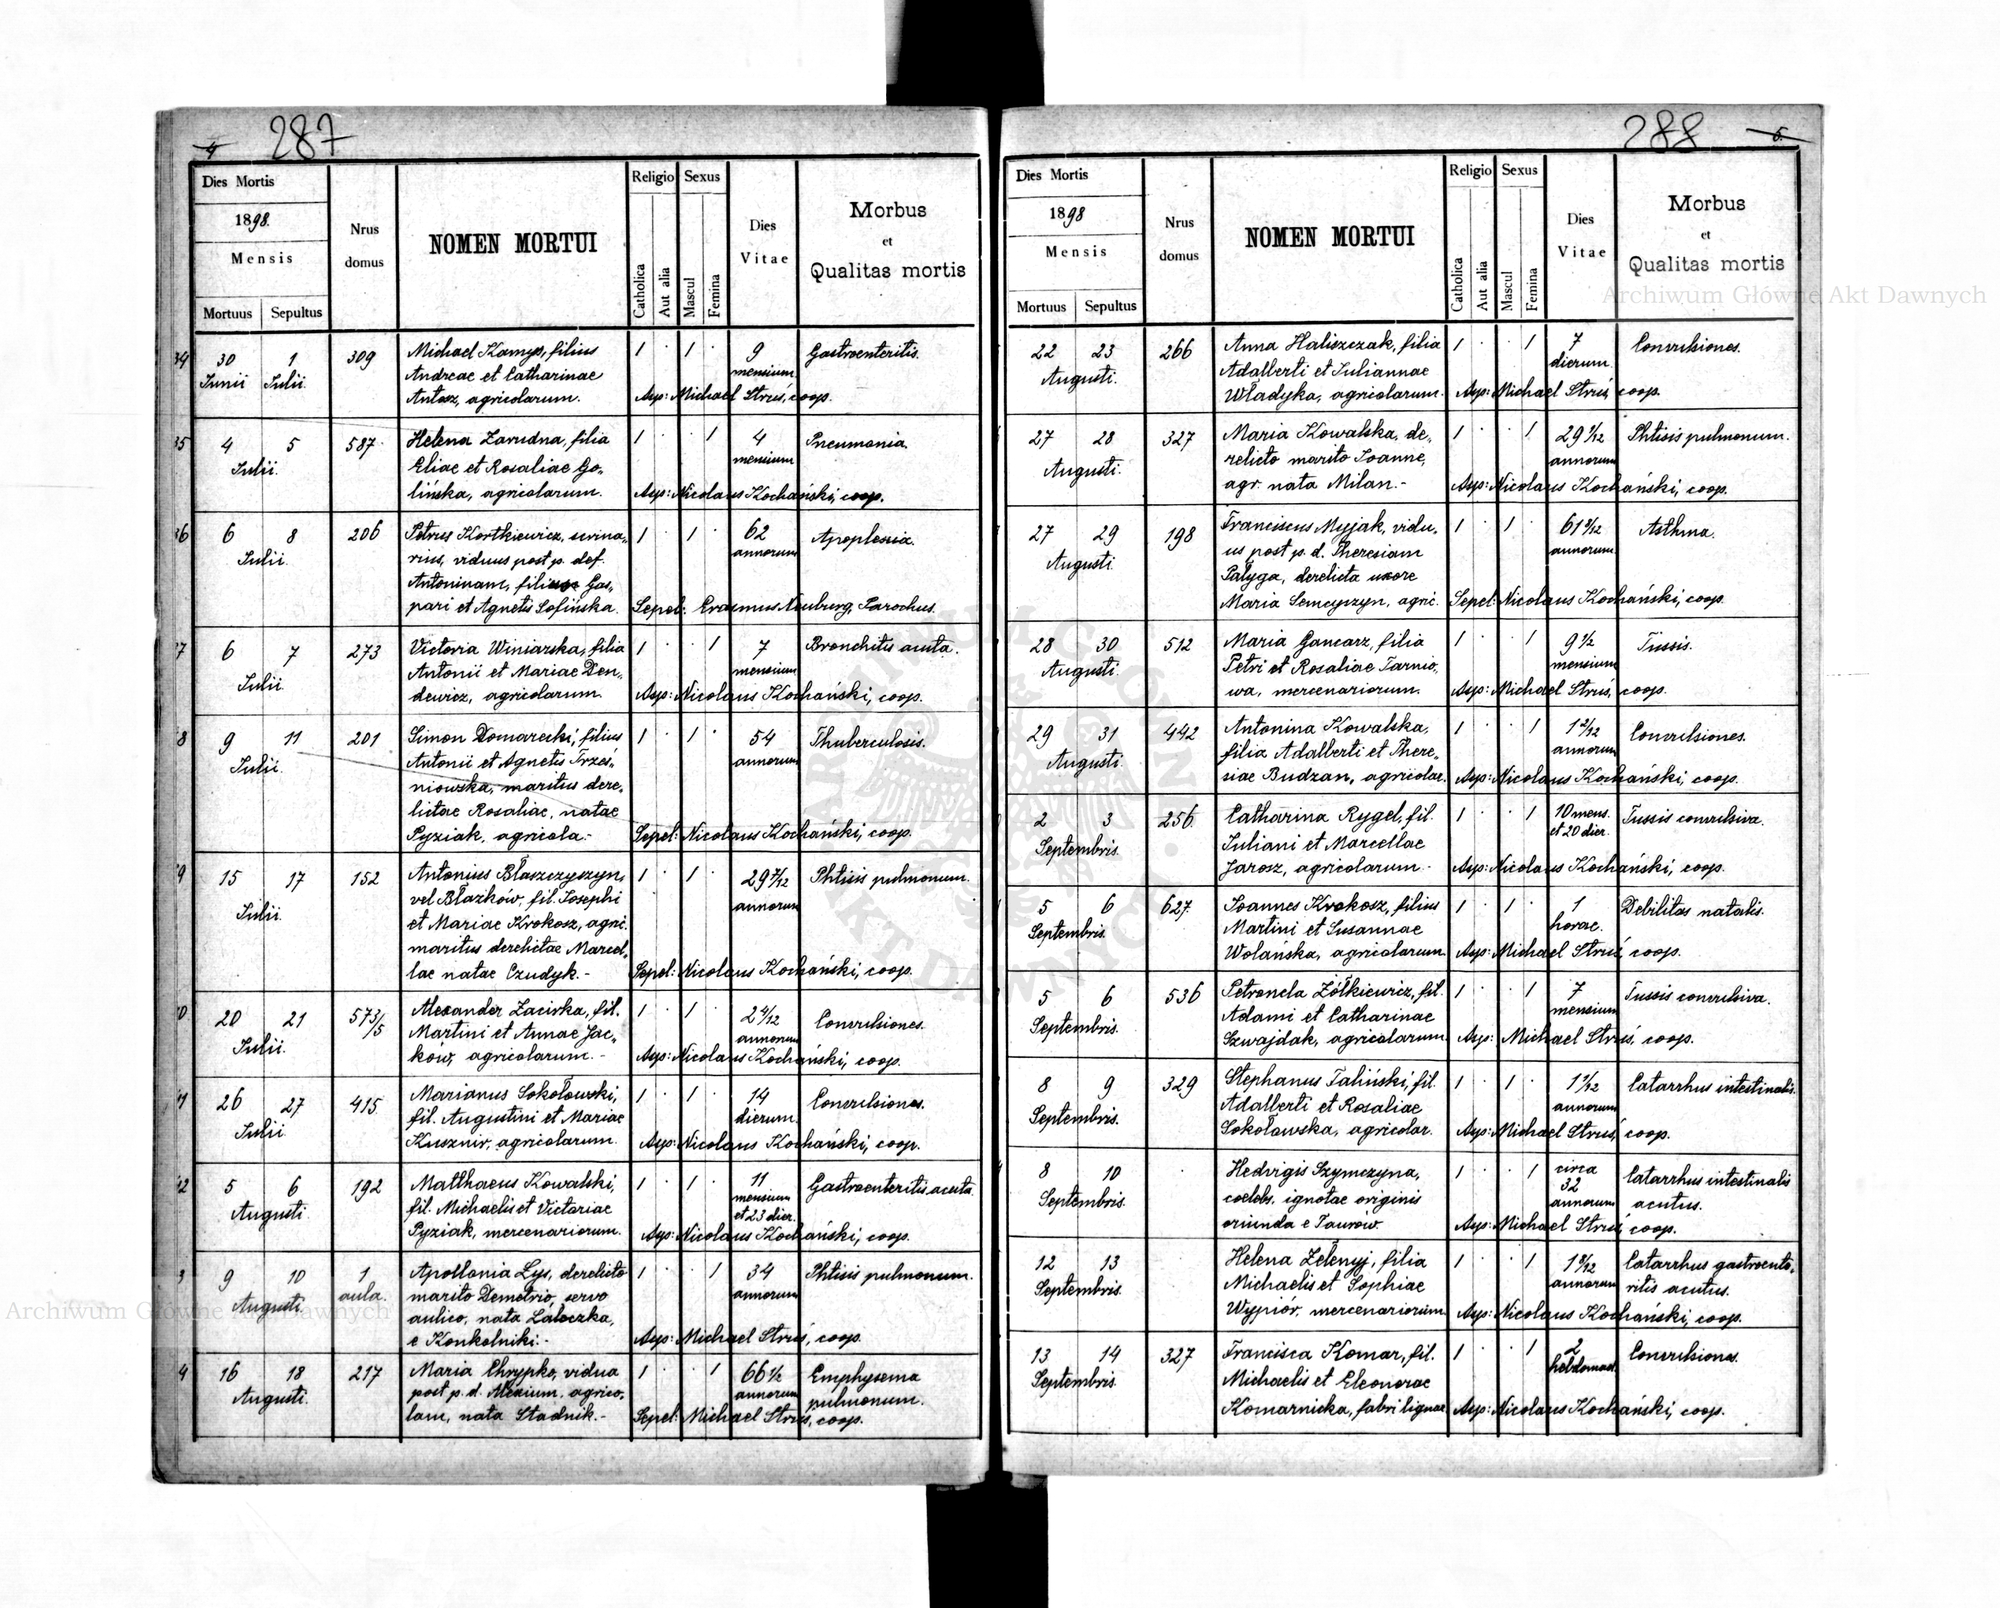 4 287
Dies Mortis
1898.
Mensis
Mortuus Sepultus
Nrus domus
NOMEN MORTUI
Religio
Catholica
Aut alia
Sexus
Mascul
Femina
Dies Vitae
Morbus
et
Qualitas mortis
34 30 1 309 Michael Kamys, filius 1 · 1 · 9 Gastroenteritis.
Junii Julii. Andreae et Catharinae mensium
Antosz, agricolarum. Asp: Michael Struś, coop.
35 4 5 587 Helena Zarudna, filia 1 · · 1 4 Pneumonia.
Julii. Eliae et Rosaliae Go„ mensium
lińska, agricolarum. Asp: Nicolaus Kochański, coop.
36 6 8 206 Petrus Kortkiewicz, scrina„ 1 · 1 · 62 Apoplexia.
Julii. rius, viduus post p. def. annorum
Antoninam, filius Gas„
pari et Agnetis Sofińska. Sepel: Erasmus Neuburg, Parochus.
7 6 7 273 Victoria Winiarska, filia 1 · · 1 7 Bronchitis acuta.
Julii. Antonii et Mariae Den„ mensium
dewicz, agricolarum. Asp: Nicolaus Kochański, coop.
8 9 11 201 Simon Domarecki, filius 1 · 1 · 54 Thuberculosis.
Julii. Antonii et Agnetis Trześ„ annorum
niowska, maritus dere„
lictae Rosaliae, natae
Pyziak, agricola.- Sepel: Nicolaus Kochański, coop.
9 15 17 152 Antonius Błaszczyszyn, 1 · 1 · 29 7/12 Phtisis pulmonum.
Julii. vel Błazków, fil. Josephi annorum
et Mariae Krokosz, agric.
maritus derelictae Marcel„
lae natae Czudyk.- Sepel: Nicolaus Kochański, coop.
0 20 21 573/5 Alexander Zacirka, fil. 1 · 1 · 2 4/12 Convulsiones.
Julii. Martini et Annae Jac„ annorum
ków, agricolarum.- Asp: Nicolaus Kochański, coop.
41 26 27 415 Marianus Sokołowski, 1 · 1 · 14 Convulsiones.
Julii. fil. Augustini et Mariae dierum.
Kusznir, agricolarum. Asp: Nicolaus Kochański, coop.
42 5 6 192 Matthaeus Kowalski, 1 · 1 · 11 Gastroenteritis acuta.
Augusti. fil. Michaelis et Victoriae mensium et 23 dier.
Pyziak, mercenariorum. Asp: Nicolaus Kochański, coop.
3 9 10 1 Apollonia Lys, derelicto 1 · · 1 34 Phtisis pulmonum.
Augusti aula. marito Demetrio, servo annorum
aulico, nata
e Konkolniki.- Asp: Michael Struś, coop.
4 16 18 217 Maria Chrypko, vidua 1 · · 1 66 1/2 Emphysema
Augusti. post p. d. Alexium, agrico„ annorum pulmonum.
lam, nata Stadnik.- Sepel: Michael Struś, coop.
288 5.
Dies Mortis
1898
Mensis
Mortuus Sepultus
Nrus domus
NOMEN MORTUI
Religio
Catholica
Aut alia
Sexus
Mascul
Femina
Dies Vitae
Morbus
et
Qualitas mortis
22 23 266 Anna Haliszczak, filia 1 · · 1 7 Convulsiones.
Augusti. Adalberti et Juliannae dierum.
Władyka, agricolarum. Asp: Michael Struś, coop.
27 28 327 Maria Kowalska, de„ 1 · · 1 29 1/12 Phtisis pulmonum.
Augusti. relicto marito Joanne, annorum
agr. nata Milan.- Asp: Nicolaus Kochański, coop.
27 29 198 Franciscus Myjak, vidu„ 1 · 1 · 61 9/12 Asthma.
Augusti. us post p. d. Theresiam annorum
Pałyga, derelicta uxore
Maria Semczyszyn, agric. Sepel: Nicolaus Kochański, coop.
28 30 512 Maria Gancarz, filia 1 · · 1 9 1/2 Tussis.
Augusti. Petri et Rosaliae Tarnio„ mensium
wa, mercenariorum. Asp: Michael Struś, coop.
29 31 442 Antonina Kowalska, 1 · · 1 1 2/12 Convulsiones.
Augusti. filia Adalberti et There„ annorum
siae Budzan, agricolar. Asp: Nicolaus Kochański, coop.
2 3 256. Catharina Rygel, fil. 1 · · 1 10 mens. Tussis convulsiva.
Septembris. Juliani et Marcellae et 20 dier.
Jarosz, agricolarum- Asp: Nicolaus Kochański, coop.
5 6 627. Joannes Krokosz, filius 1 · 1 · 1 Debilitas natalis.
Septembris. Martini et Susannae horae.
Wolańska, agricolarum. Asp: Michael Struś, coop.
5 6 536 Petronela Żółkiewicz, fil. 1 · · 1 7 Tussis convulsiva.
Septembris. Adami et Catharinae mensium
Szwajdak, agricolarum. Asp: Michael Struś, coop.
8 9 329 Stephanus Taliński, fil. 1 · 1 · 1 1/12 Catarrhus intestinalis.
Septembris. Adalberti et Rosaliae annorum
Sokołowska, agricolar. Asp: Michael Struś, coop.
8 10 · Hedvigis Szymczyna, 1 · · 1 circa 32 Catarrhus intestinalis
Septembris. coelebs, ignotae originis annorum acutus.
oriunda e Taurów. Asp: Michael Struś, coop.
12 13 Helena Zełenyj, filia 1 · · 1 Catarrhus gastroente„
Septembris. Michaelis et Sophiae annorum ritis acutus.
Wypiór, mercenariorum. Asp: Nicolaus Kochański, coop.
13 14 327 Francisca Komar, fil. 1 · · 1 2 Convulsiones.
Septembris. Michaelis et Eleonorae hebdomad.
Komarnicka, fabri lignar. Asp: Nicolaus Kochański, coop.
Archiwum Główne Akt Dawnych
Archiwum Główne Akt Dawnych
ARCHIWUM GŁÓWNE AKT DAWNYCH